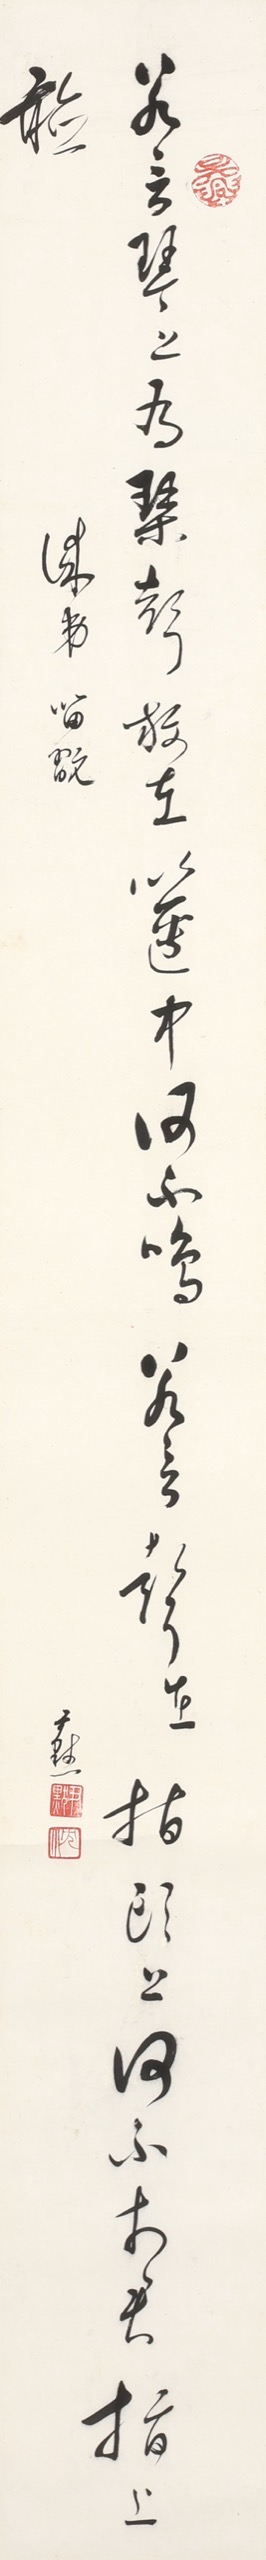 若言琴上有琴聲放在匣中何不鳴若言聲在指頭上何不於君指上
聽
留翫
尹默